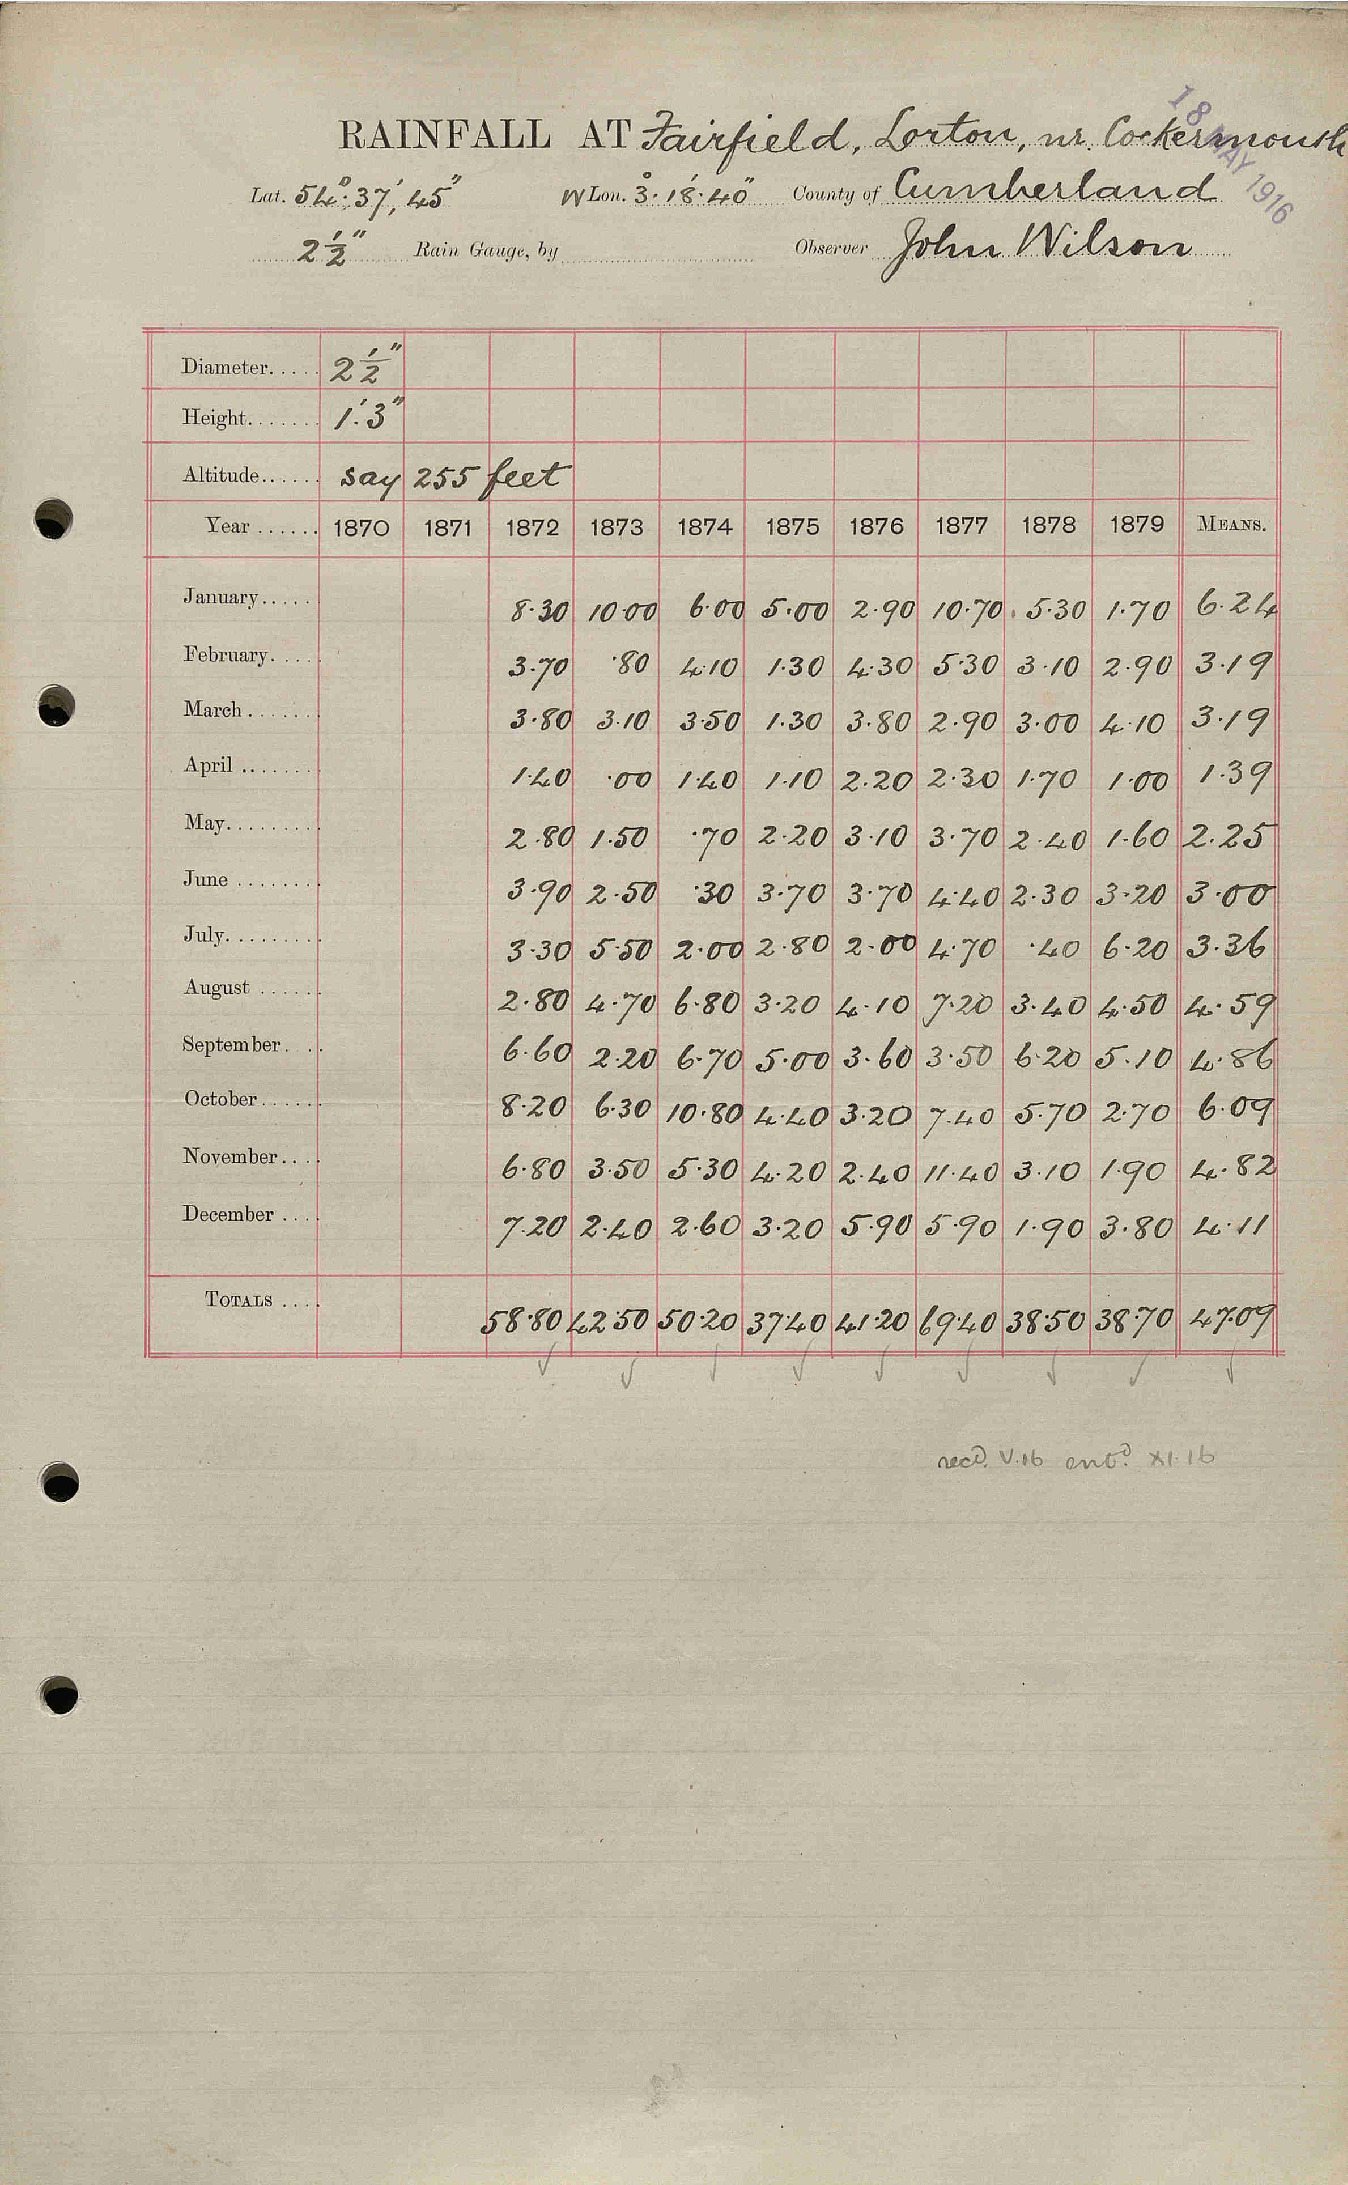 RAINFALL AT Fairfield, Lorton, nr. Cockermouth
18 MAY 1916
Lat. 54°. 37', 45" W Lon. 3°. 18'. 40" County of Cumberland
2 1/2" Rain Gauge, by Observer John Wilson
Diameter..... 2 1/2"
Height....... 1'. 3"
Altitude...... say 255 feet
Year ...... 1870 1871 1872 1873 1874 1875 1876 1877 1878 1879 MEANS.
January..... 8·30 10·00 6·00 5·00 2·90 10·70 5·30 1·70 6·24
February..... 3·70 ·80 4·10 1·30 4·30 5·30 3·10 2·90 3·19
March ....... 3·80 3·10 3·50 1·30 3·80 2·90 3·00 4·10 3·19
April ........ 1·40 ·00 1·40 1·10 2·20 2·30 1·70 1·00 1·39
May......... 2·80 1·50 ·70 2·20 3·10 3·70 2·40 1·60 2·25
June ........ 3·90 2·50 ·30 3·70 3·70 4·40 2·30 3·20 3·00
July......... 3·30 5·50 2·00 2·80 2·00 4·70 ·40 6·20 3·36
August ...... 2·80 4·70 6·80 3·20 4·10 7·20 3·40 4·50 4·59
September.... 6·60 2·20 6·70 5·00 3·60 3·50 6·20 5·10 4·86
October...... 8·20 6·30 10·80 4·40 3·20 7·40 5·70 2·70 6·09
November.... 6·80 3·50 5·30 4·20 2·40 11·40 3·10 1·90 4·82
December .... 7·20 2·40 2·60 3·20 5·90 5·90 1·90 3·80 4·11
TOTALS .... 58·80 42·50 50·20 37·40 41·20 69·40 38·50 38·70 47·09
recd. V.16 entd. XI.16